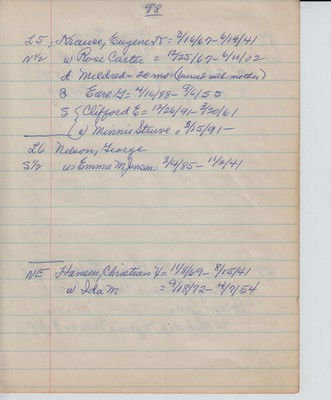 98
L5: Krause, Eugene W = 3/16/67 - 6/14/41
N 1/2 w Rose Carter = 12/25/67 - 6/11/02
d Mildred - 20 mos (buried with mother)
8 Earl G = 4/16/88 - 9/6/53
S { Clifford E = 12/26/91 - 3/30/61
{ w Minnie Struve = 3/15/91 -
L6 Nelson, George
S 1/2 w Emma M Jensen = 3/4/85 - 11/2/41
NE Hansen, Christian Y = 11/8/69 - 8/15/41
w Ida M = 9/18/72 - 4/7/54